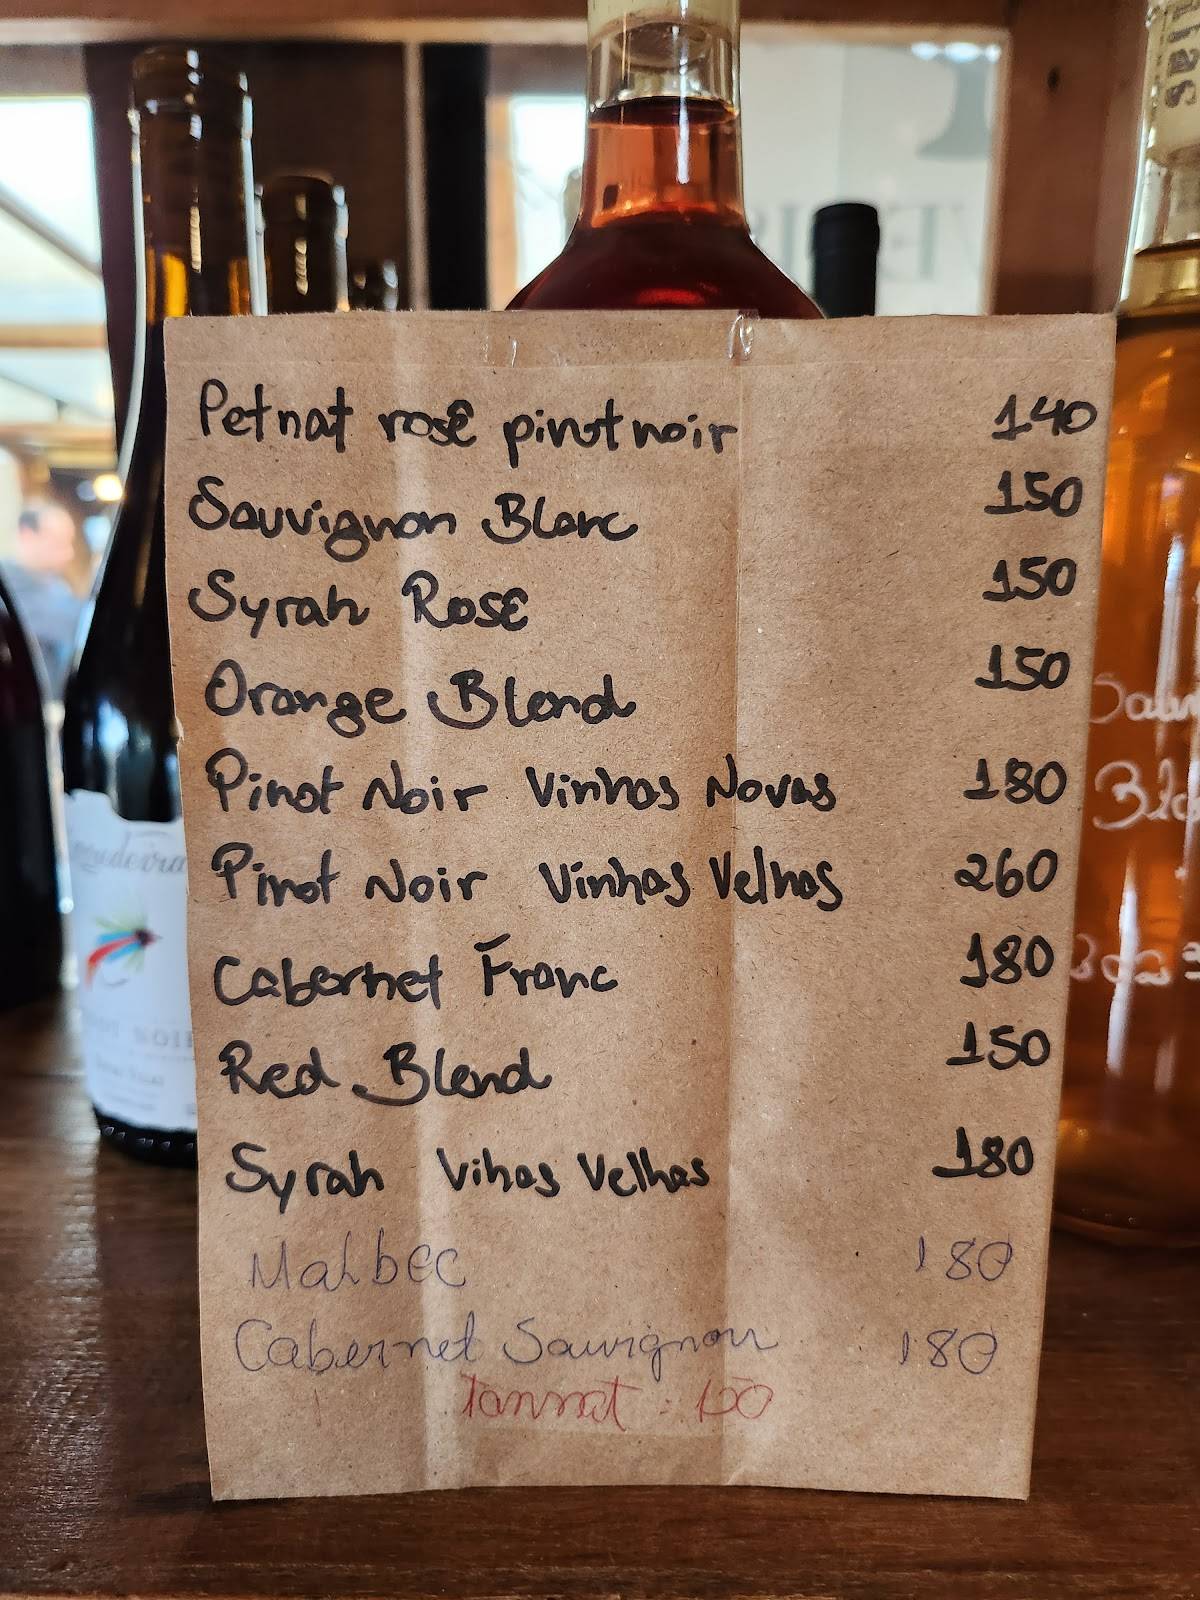 Petnat rosê pinot noir 140
Sauvignon Blanc 150
Syrah Rosé 150
Orange Blend 150
Pinot Noir Vinhas Novas 180
Pinot Noir Vinhas Velhas 260
Cabernet Franc 180
Red Blend 150
Syrah Vihas Velhas 180
Malbec 180
Cabernet Sauvignon 180
Tannat : 150